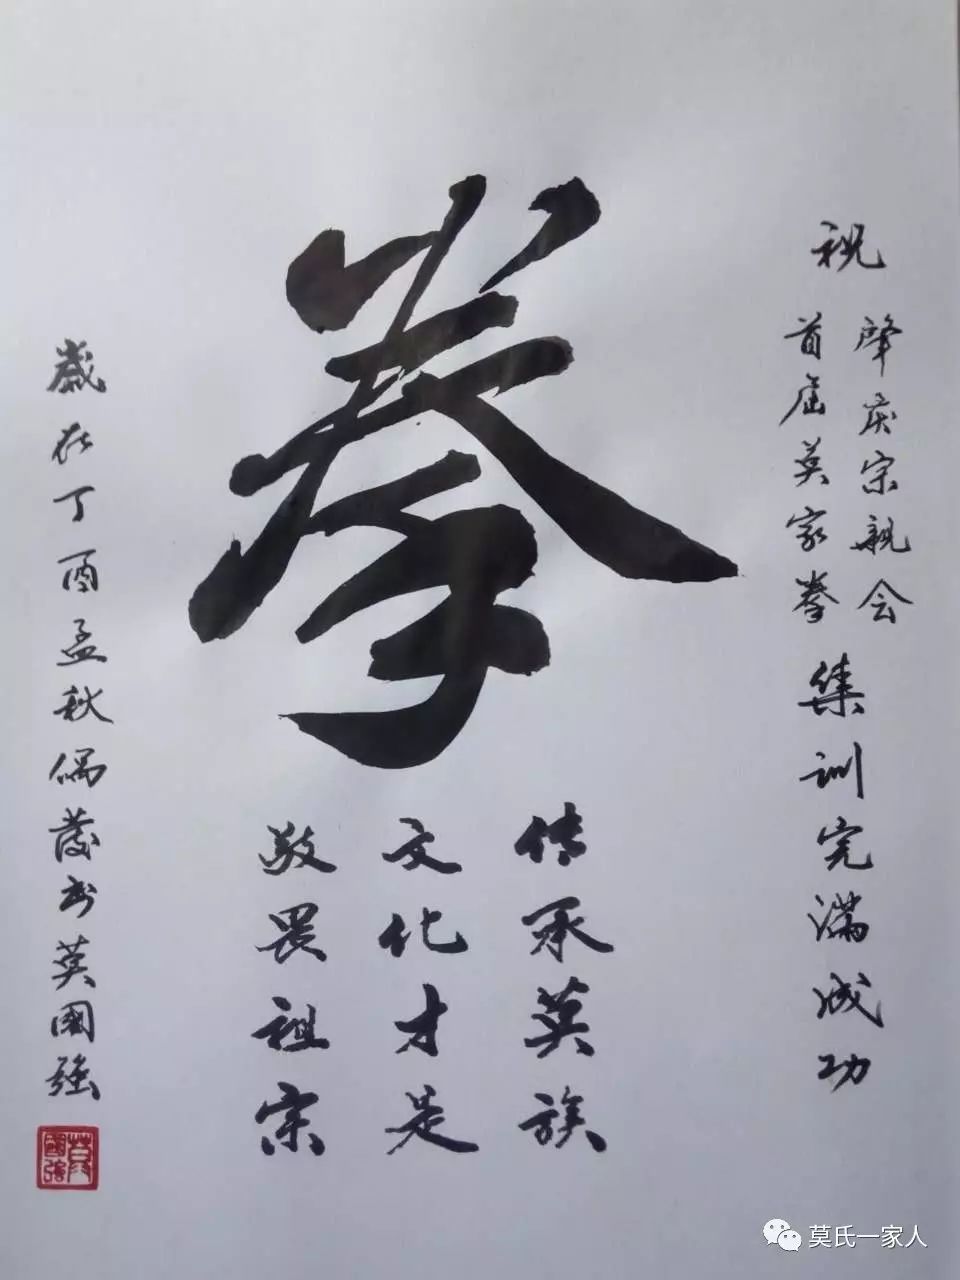 祝
肇庆宗亲会
首届莫家拳
集训完满成功
拳
传承莫族
文化才是
敬畏祖宗
岁在丁酉孟秋偶发书莫国强
莫國強
莫氏一家人